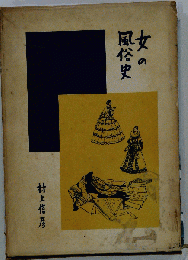 女の
風俗史
村上信彦